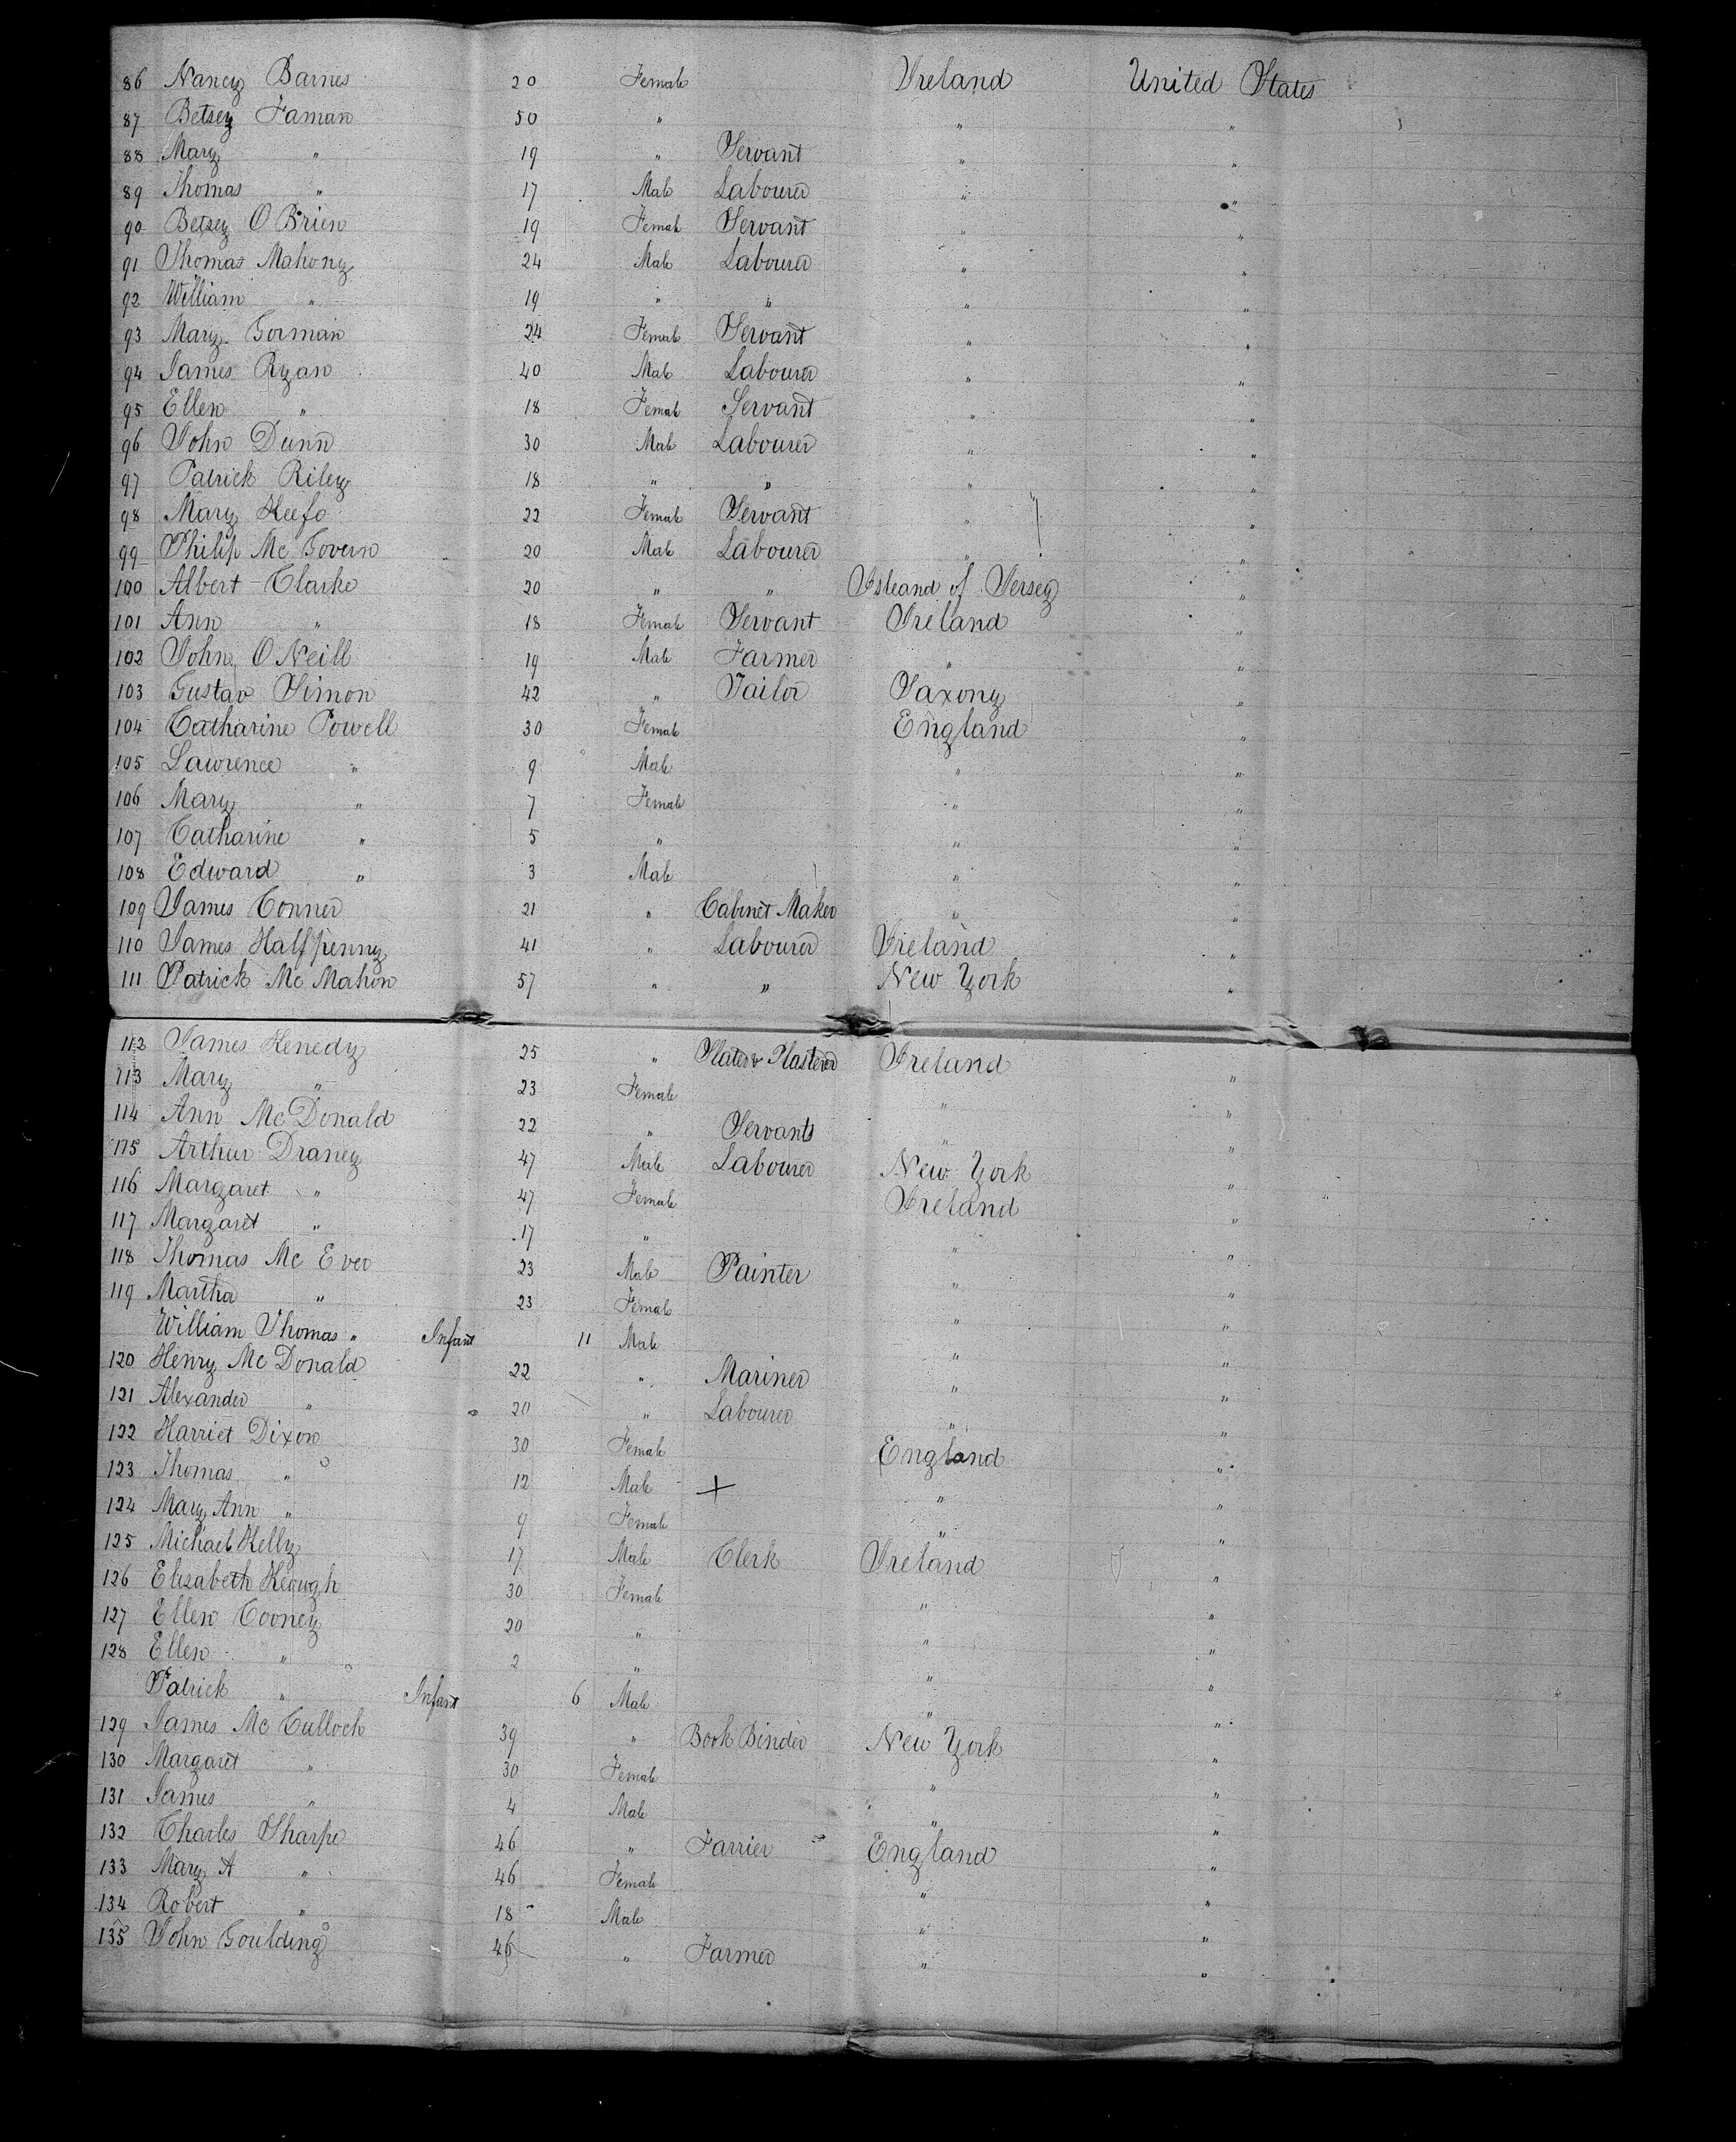 86 Nancy Barnes 20 Female Ireland United States
87 Betsey Faman 50 " " "
88 Mary " 19 " Servant " "
89 Thomas " 17 Male Labourer " "
90 Betsey O Brien 19 Female Servant " "
91 Thomas Mahony 24 Male Labourer " "
92 William " 19 " " " "
93 Mary Gorman 24 Female Servant " "
94 James Ryan 40 Male Labourer " "
95 Ellen " 18 Female Servant " "
96 John Dunn 30 Male Labourer " "
97 Patrick Riley 18 " " " "
98 Mary Keefe 22 Female Servant " "
99 Philip Mc Govern 20 Male Labourer " "
100 Albert Clarke 20 " " Isleand of Jersey "
101 Ann " 18 Female Servant Ireland "
102 John O Neill 19 Male Farmer " "
103 Gustav Simon 42 " Tailor Saxony "
104 Catharine Powell 30 Female England "
105 Lawrence " 9 Male " "
106 Mary " 7 Female " "
107 Catharine " 5 " " "
108 Edward " 3 Male " "
109 James Conner 21 " Cabinet Maker " "
110 James Halfpenny 41 " Labourer Ireland "
111 Patrick Mc Mahon 57 " " New York "
112 James Kenedy 25 " Slater & Plasterer Ireland "
113 Mary " 23 Female " "
114 Ann Mc Donald 22 " Servants " "
115 Arthur Draney 47 Male Labourer New York "
116 Margaret " 47 Female Ireland "
117 Margaret " 17 " " "
118 Thomas Mc Ever 23 Male Painter " "
119 Martha " 23 Female " "
William Thomas " Infant 11 Male " "
120 Henry Mc Donald 22 " Mariner " "
121 Alexander " 20 " Labourer " "
122 Harriet Dixon 30 Female England "
123 Thomas " 12 Male + " "
124 Mary Ann " 9 Female " "
125 Michael Kelly 17 Male Clerk Ireland "
126 Elisabeth Keough 30 Female " "
127 Ellen Cooney 20 " " "
128 Ellen " 2 " " "
Patrick " Infant 6 Male " "
129 James Mc Culloch 39 " Book Binder New York "
130 Margaret " 30 Female " "
131 James " 4 Male " "
132 Charles Sharpe 46 " Farrier England "
133 Mary A " 46 Female " "
134 Robert " 18 Male " "
135 John Goulding 46 " Farmer " "